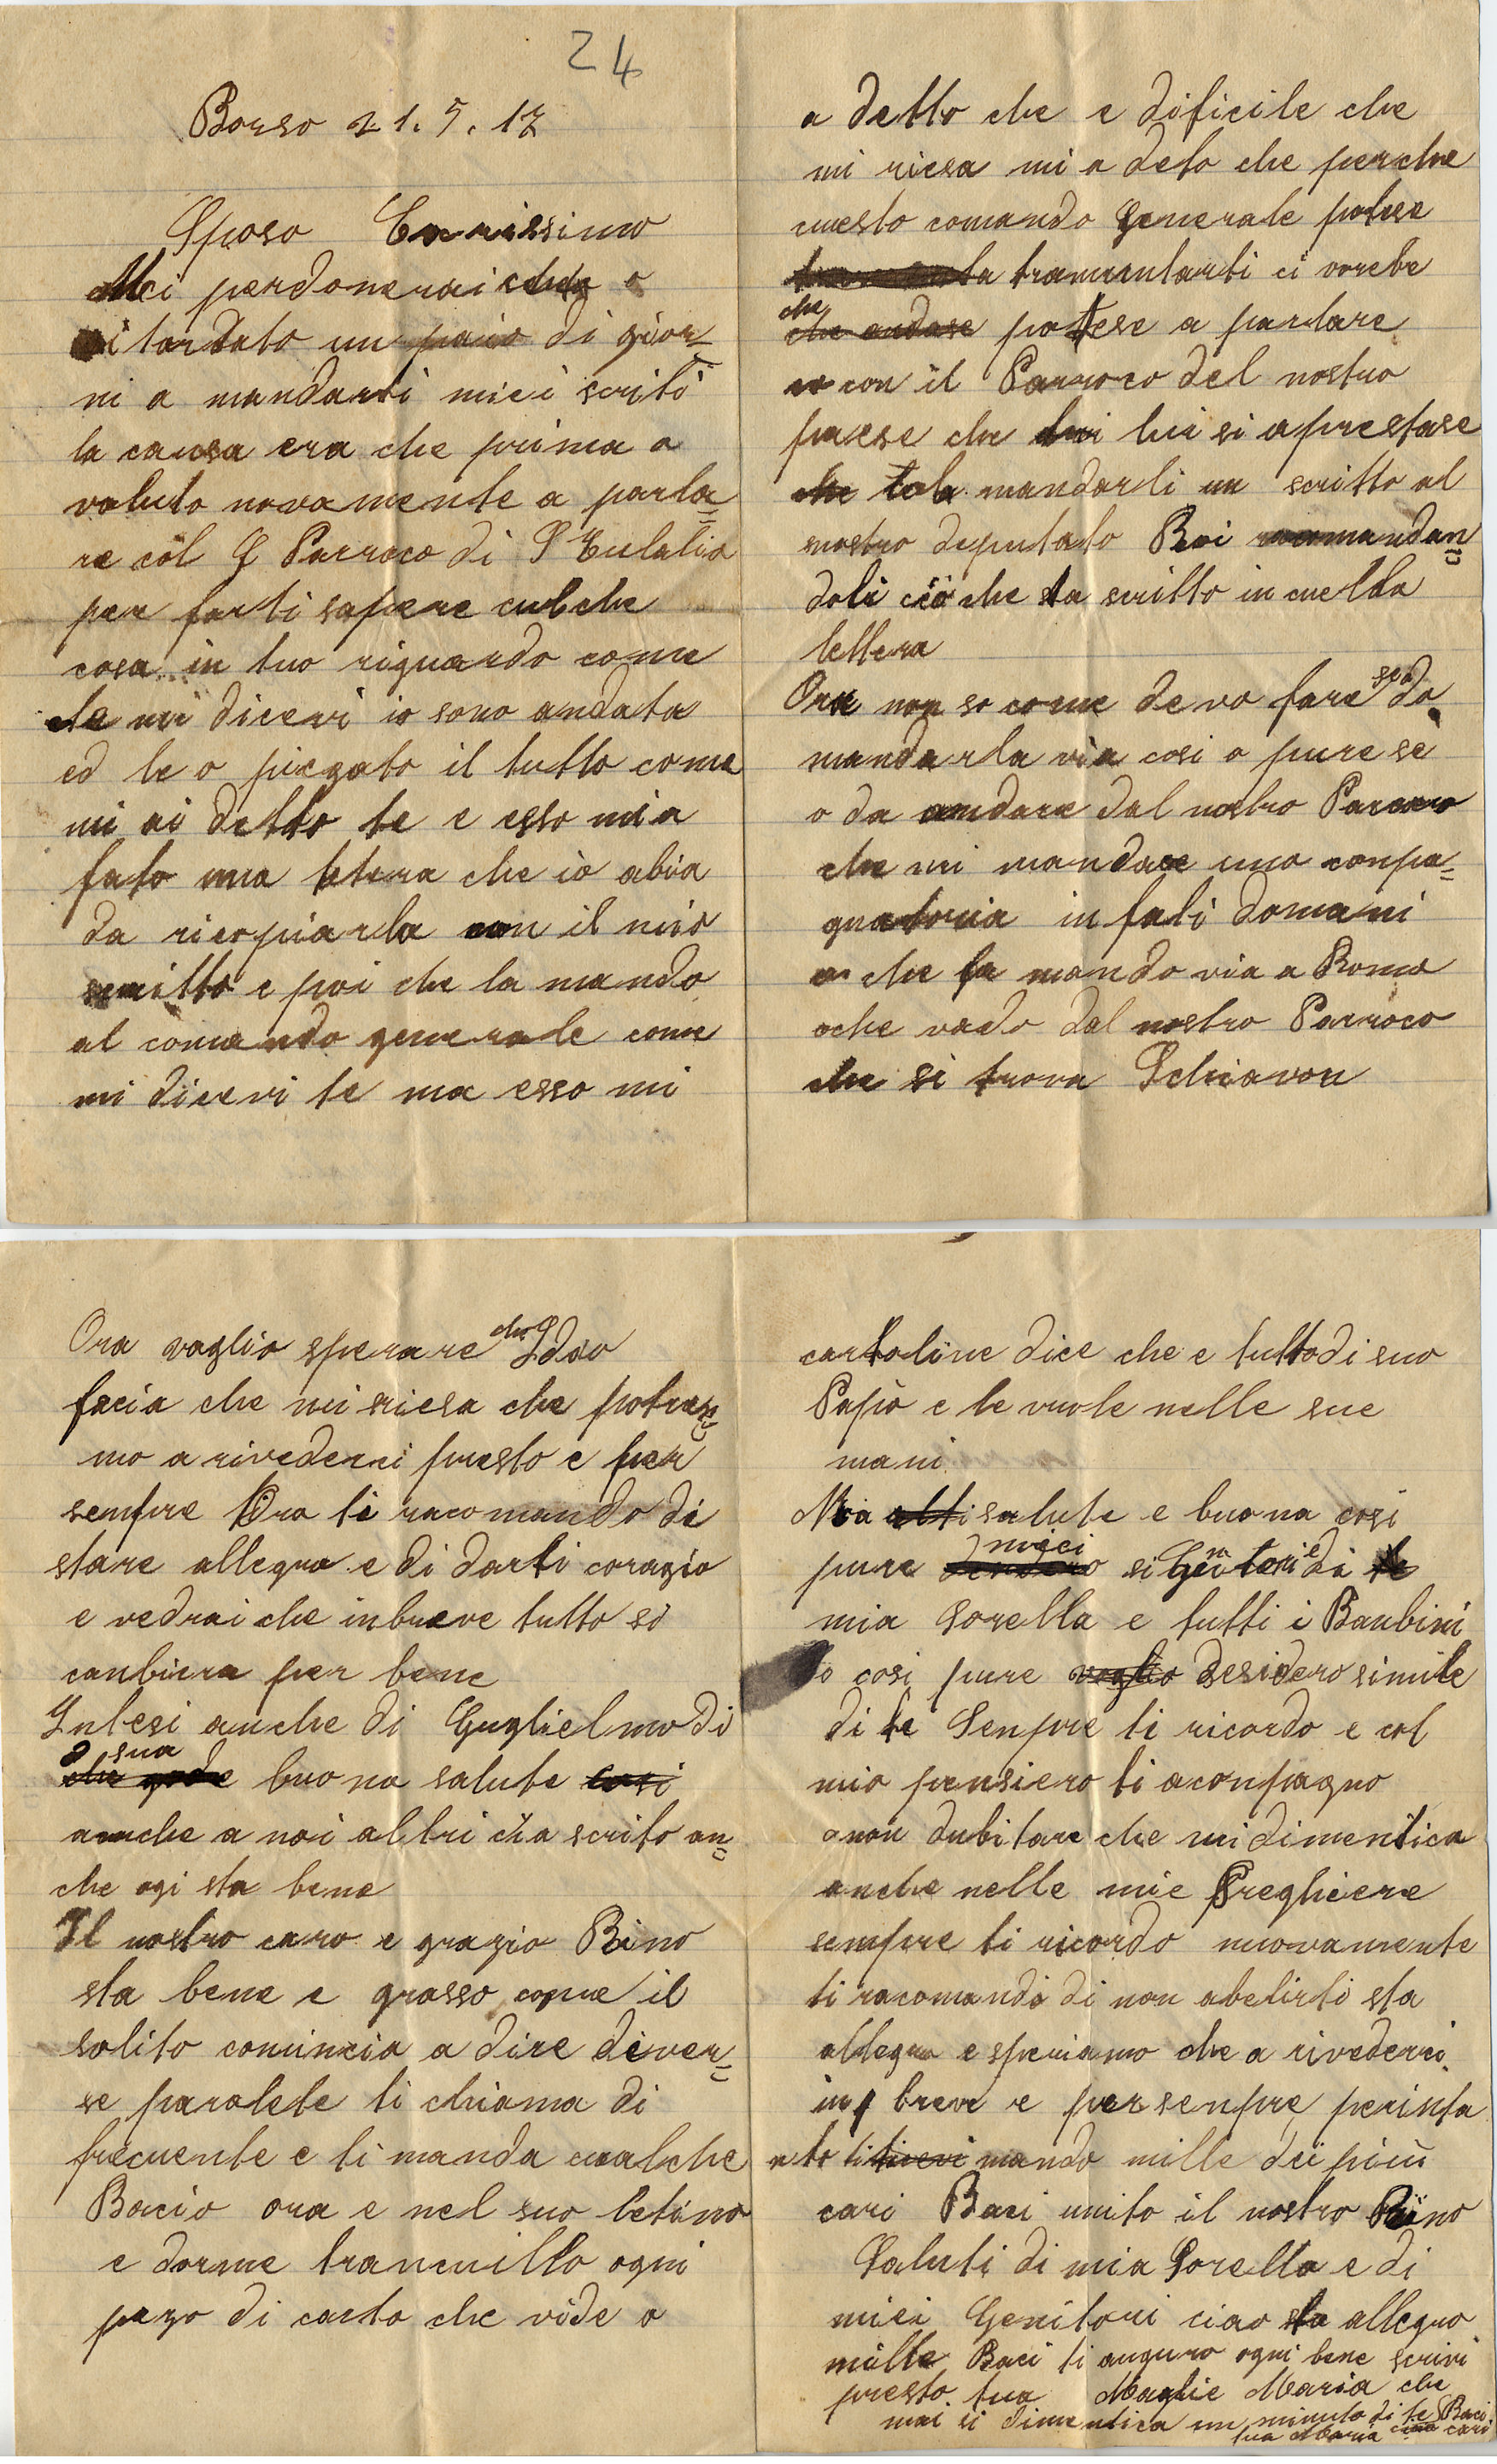 24
Borso 21.5.17
Sposo Carissimo
Mi perdonerai che o
ritardato un paio di gior=
ni a mandarti miei scriti
la causa era che prima o
voluto novamente a parla=
re col S Parroco di S Eulalia
per farti sapere cualche
cosa in tuo riguardo come
te mi dicevi io sono andata
ed le o piegato il tutto come
mi ai detto te e esso mi a
fato una letera che io abia
da ricopiarla con il mio
scritto e poi che la mando
al comando generale come
mi dicevi te ma esso mi
a detto che e dificile che
mi riesa mi a deto che perche
cuesto comando Generale potese
tramentarti ci vorebe
che
che andase potese a parlare
con il Parroco del nostro
paese che lui si aprestase
che mandarli un scritto al
nostro deputato Roi racomandan=
doli ciò che sta scritto in cuella
lettera
Ora non so come devo fare se do
mandarla via cosi o pure se
o da andare dal nostro Parroco
che mi mandase una conpa=
gnatoria in fati domani
o che la mando via a Roma
oche vado dal nostro Parroco
che si trova Schiavon
Ora voglio sperare che Iddio
facia che mi riesa che potre=
mo a rivederci presto e per
sempre Ora ti racomando di
stare allegro e di darti coragio
e vedrai che inbreve tutto si
canbiera per bene
Intesi anche di Guglielmo di
sua
che gode buona salute cosi
anche a noi altri cia scrito an=
che ogi sta bene
Il nostro caro e grazio Rino
sta bene e grasso come il
solito comincia a dire diver=
se parolete ti chiama di
frecuente e ti manda cualche
Bacio ora e nel suo letino
e dorme trancuillo ogni
pezo di carta che vide o
cartoline dice che e tutto di suo
Papio e le vuole nelle sue
mani
Mia salute e buona cosi
miei
pure si Genitori e di
mia Sorella e tutti i Banbini
o cosi pure voglio desidero simile
di te Senpre ti ricordo e col
mio pensiero ti aconpagno
non dubitare che mi dimentica
anche nelle mie Preghiere
sempre ti ricordo nuovamente
ti racomando di non abelirti sta
allegro e speriamo che a rivederci
in breve e per senpre perinta
nto ti mando mille dei più
cari Baci unito il nostro Rino
Saluti di mia Sorella e di
miei Genitori ciao sta allegro
mille Baci ti auguro ogni bene scrivi
presto tua Moglie Maria che
mai si dimentica un minuto di te Baci
tua Maria ciao cari